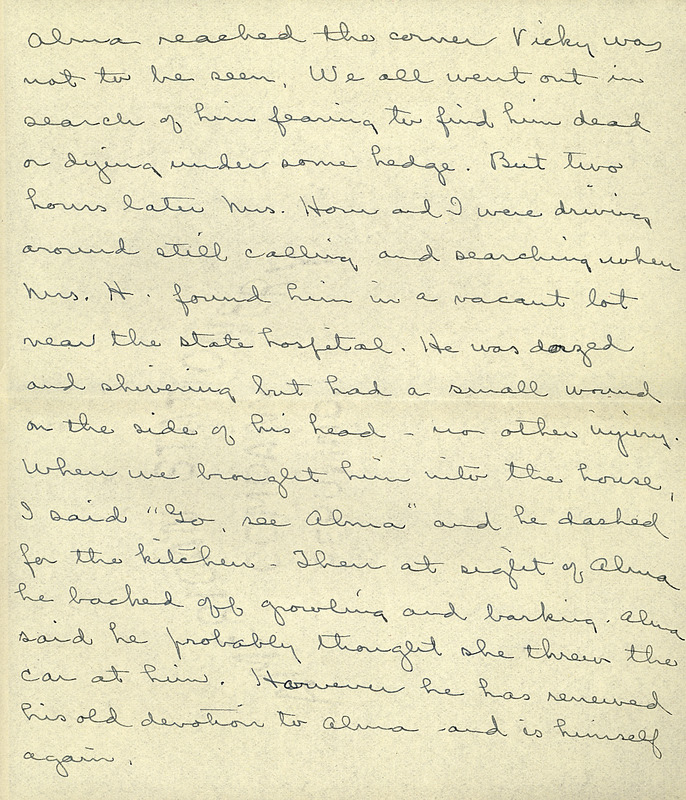 Alma reached the corner Vicky was
not to be seen. We all went out in
search of him fearing to find him dead
or dying under some hedge. But two
hours later Mrs. Horn and I were driving
around still calling and searching when
Mrs. H. found him in a vacant lot
near the state hospital. He was dazed
and shivering but had a small wound
on the side of his head - no other injury.
When we brought him into the house,
I said "Go, see Alma" and he dashed
for the kitchen - Then at sight of Alma
he backed off growling and barking. Alma
said he probably thought she threw the
car at him. However he has renewed
his old devotion to Alma and is himself
again.